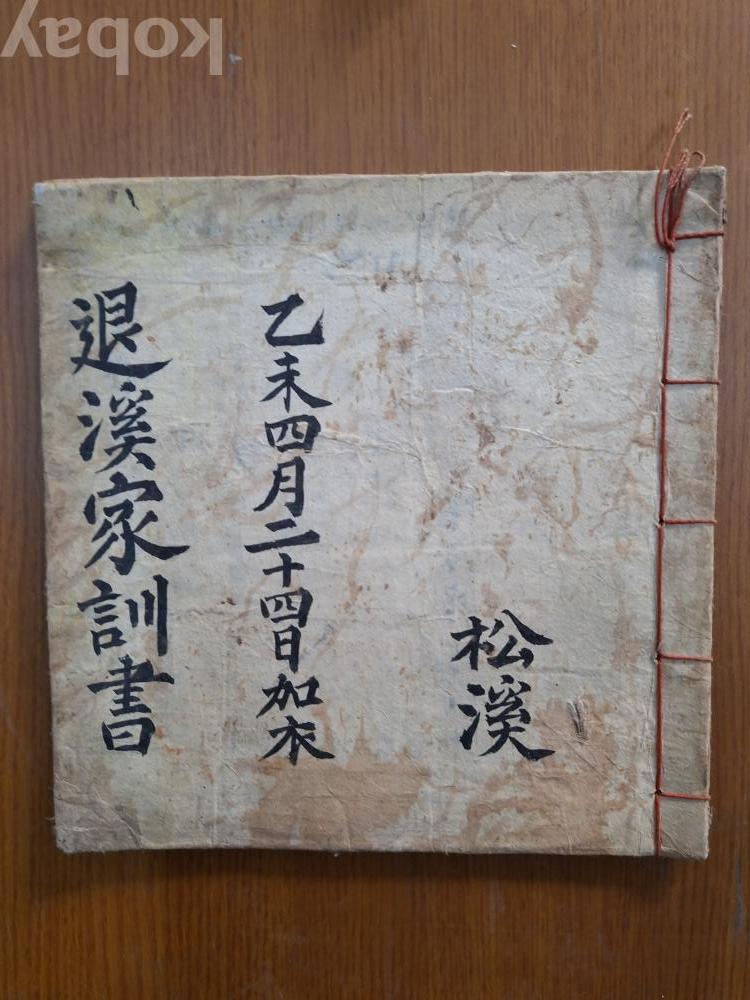 kobay
松溪
乙未四月二十四日加衣
退溪家訓書